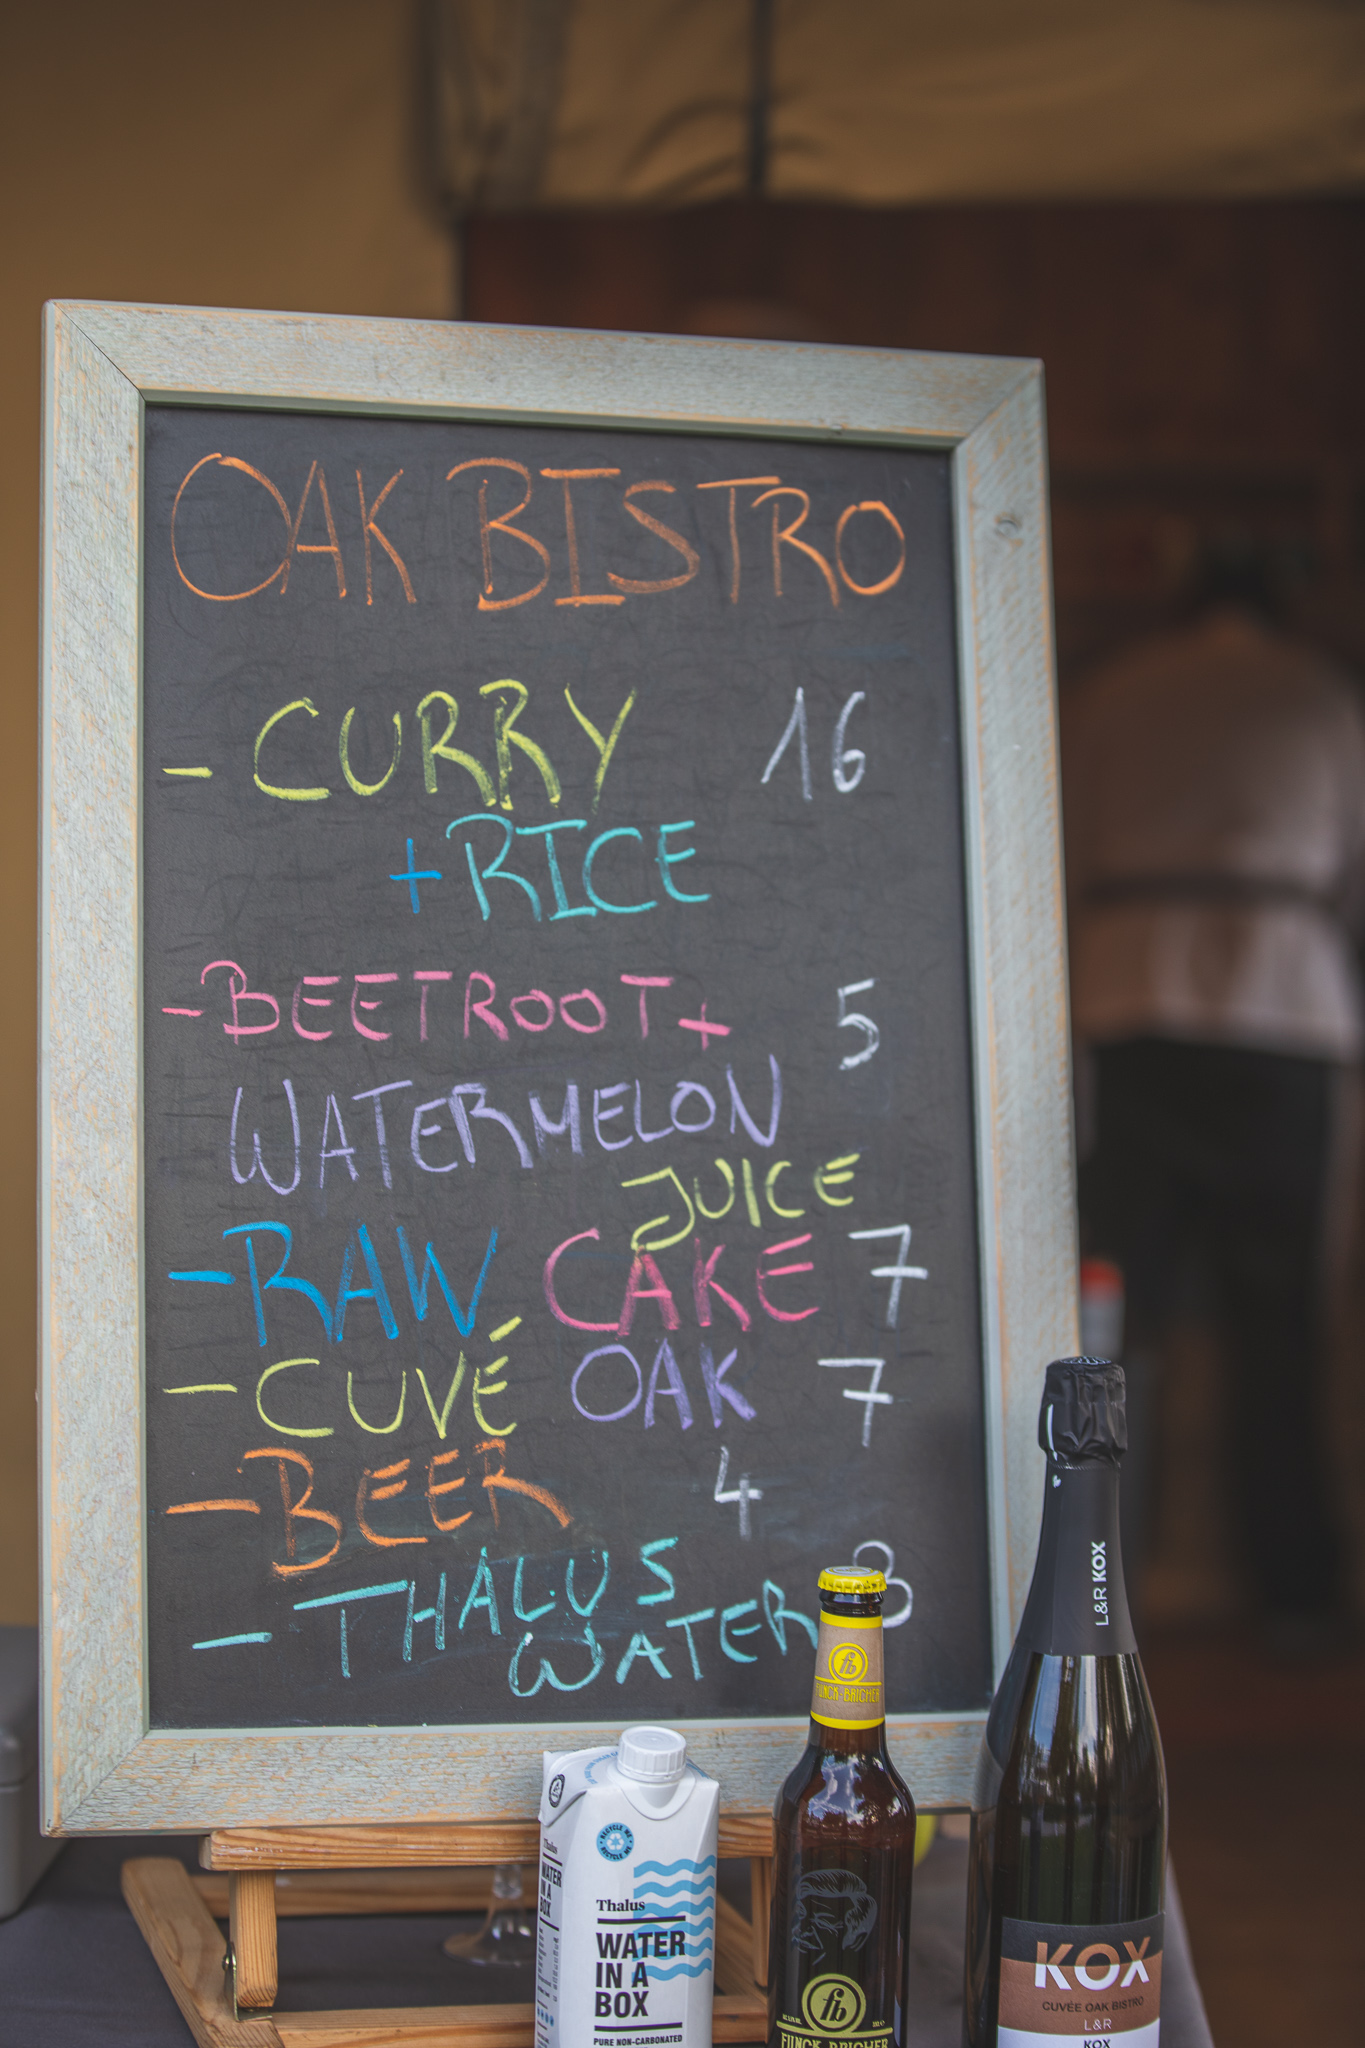 OAK BISTRO
- CURRY 16
+ RICE
- BEETROOT + 5
WATERMELON
JUICE
- RAW CAKE 7
- CUVÉ OAK 7
- BEER 4
- THALUS 3
WATER
L&R KOX
FUNCK-BRICHER
RECYCLE ME
RECYCLE ME
Thalus
WATER
IN A
BOX
PURE NON-CARBONATED
Thalus
WATER
IN A
BOX
fb
fb
FUNCK-BRICHER
KOX
CUVÉE OAK BISTRO
L&R
KOX